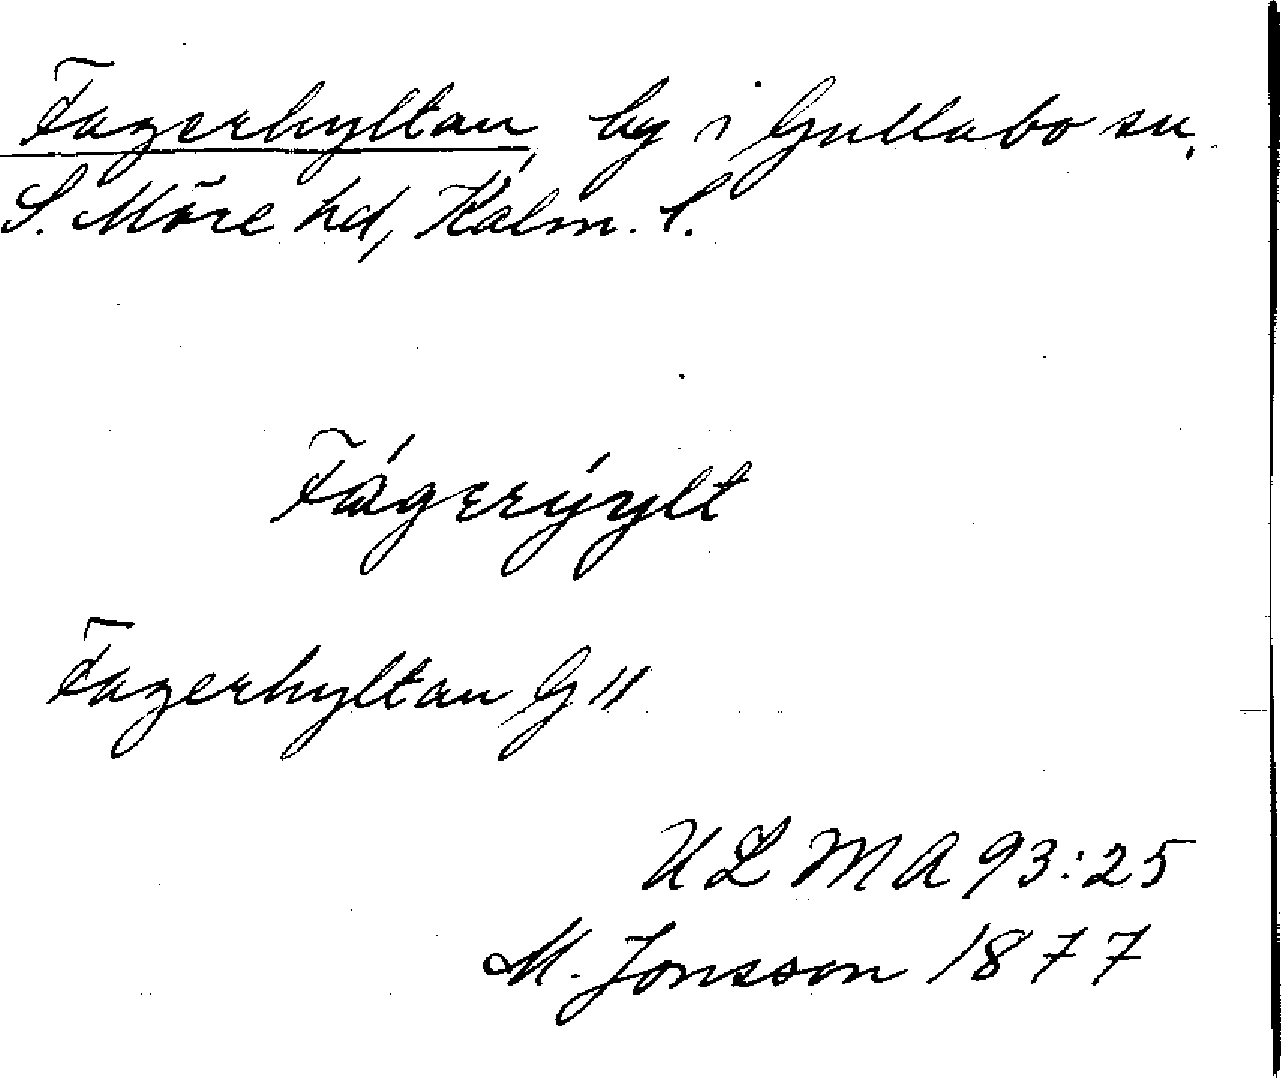 Fagerhyltan, by i Gullabo sn,
S. Möre hd, Kalm. l.
Fágerýylt
Fagerhyltan G 11
ULMA 93:25
M. Jonsson 1877